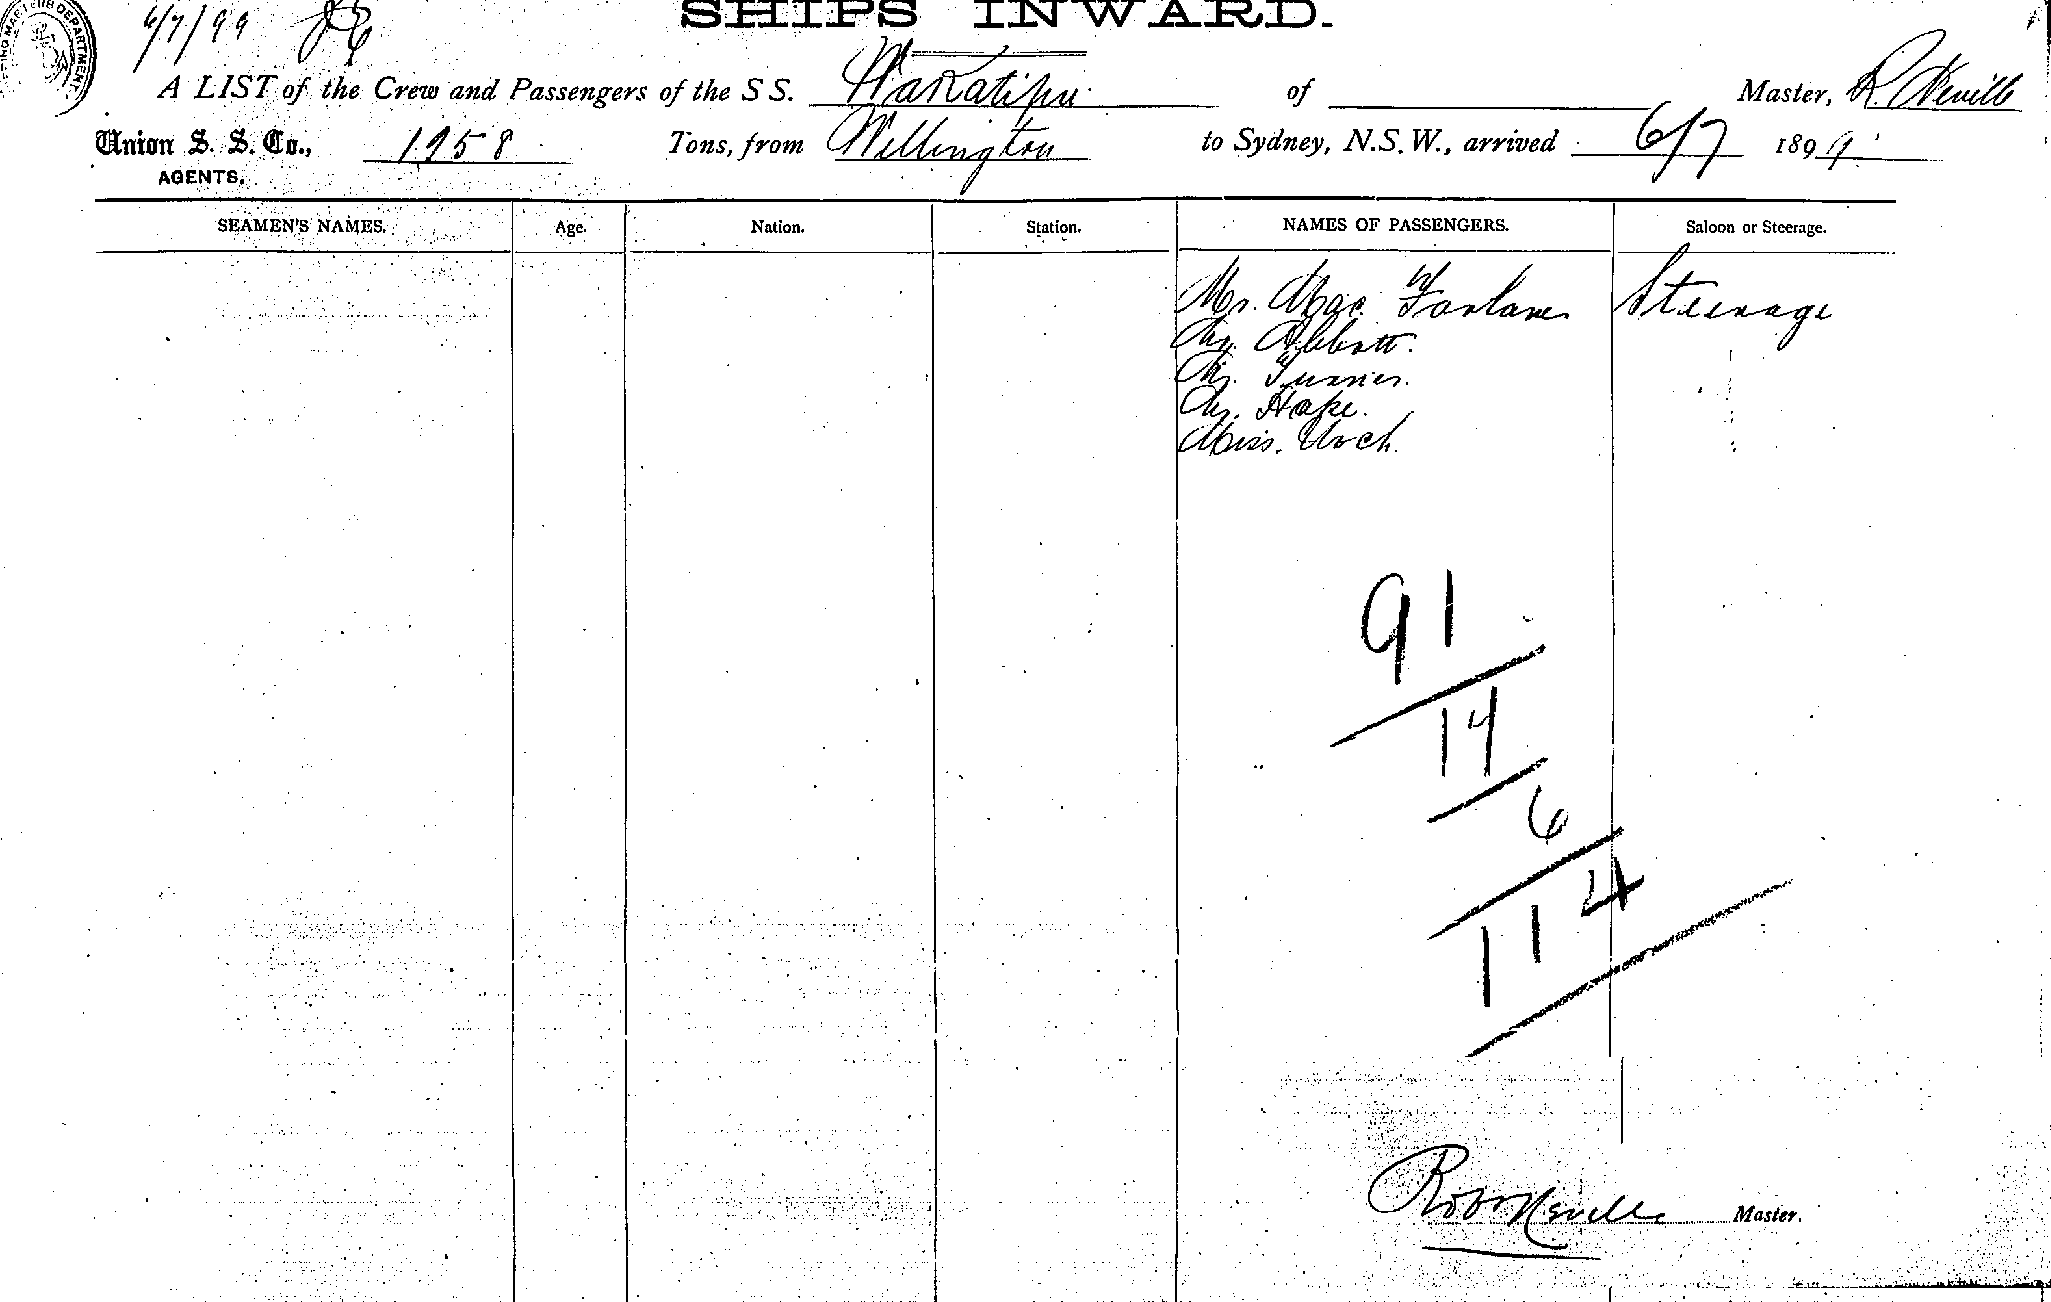 6/7/99
SHIPS INWARD.
A LIST of the Crew and Passengers of the SS. Wakatipu of Master, R. Neville
Union S. S. Co., 1958 Tons, from Wellington to Sydney, N.S.W., arrived 6/7 1899
AGENTS.
SEAMEN'S NAMES. Age. Nation. Station. NAMES OF PASSENGERS. Saloon or Steerage.
Mr. Mac Farlane Steerage
Mr. Abbott.
Mr. Turner.
Mr. Hope.
Miss. Urch.
91
14
6
114
Robt Neville Master.